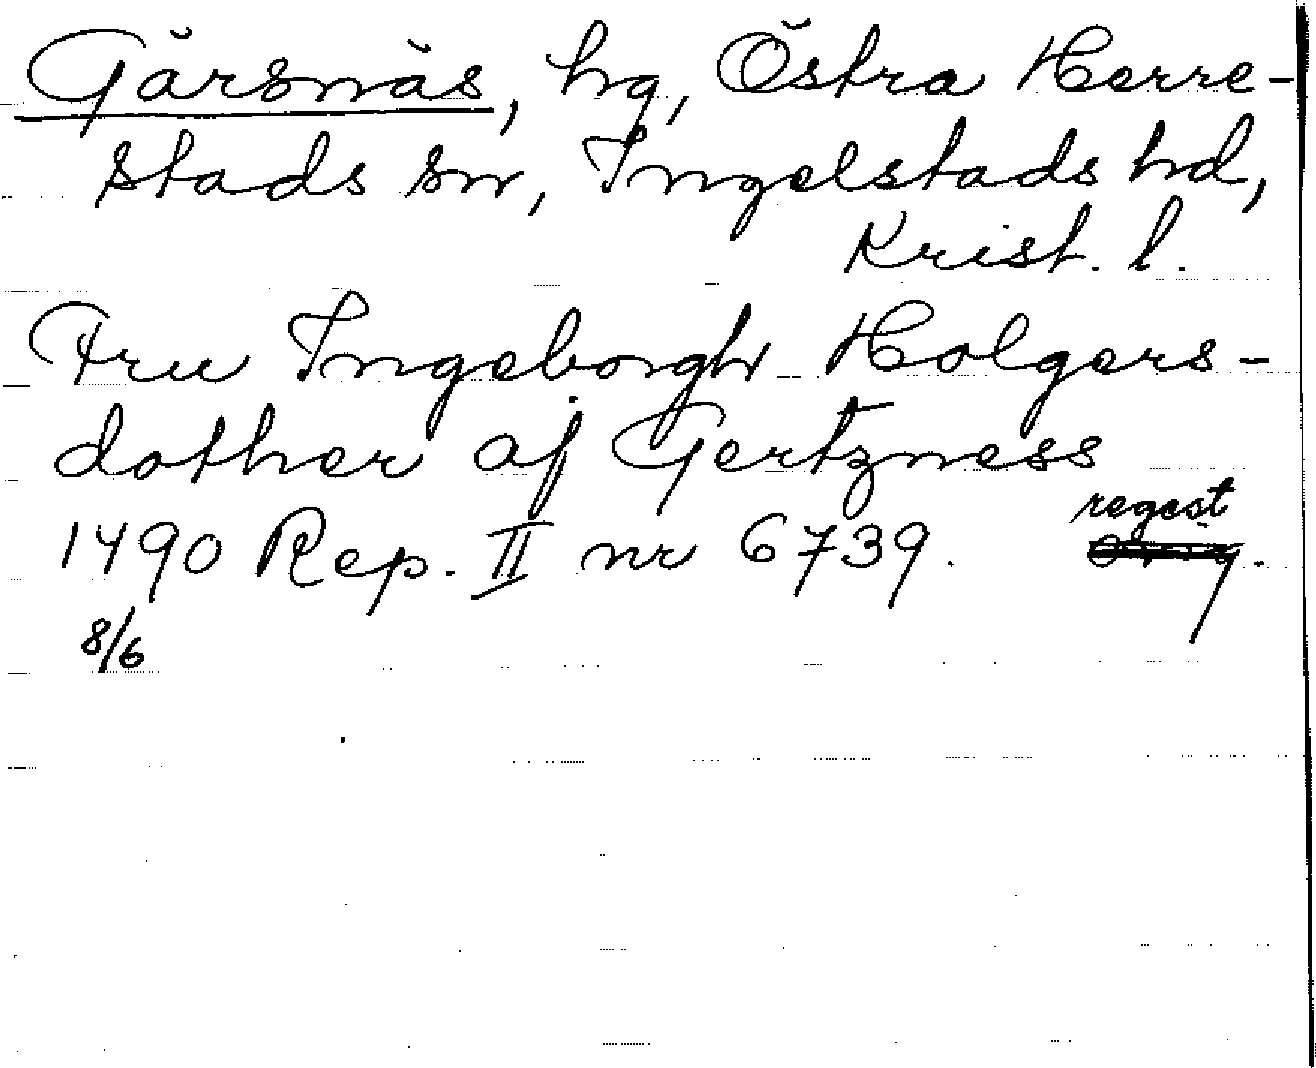 Gärsnäs, hg, Östra Herre-
stads sn, Ingelstads hd,
Krist. l.
Fru Ingeborgh Holgers-
dother af Gertzness
regest
1490 Rep. II nr 6739.
8/6